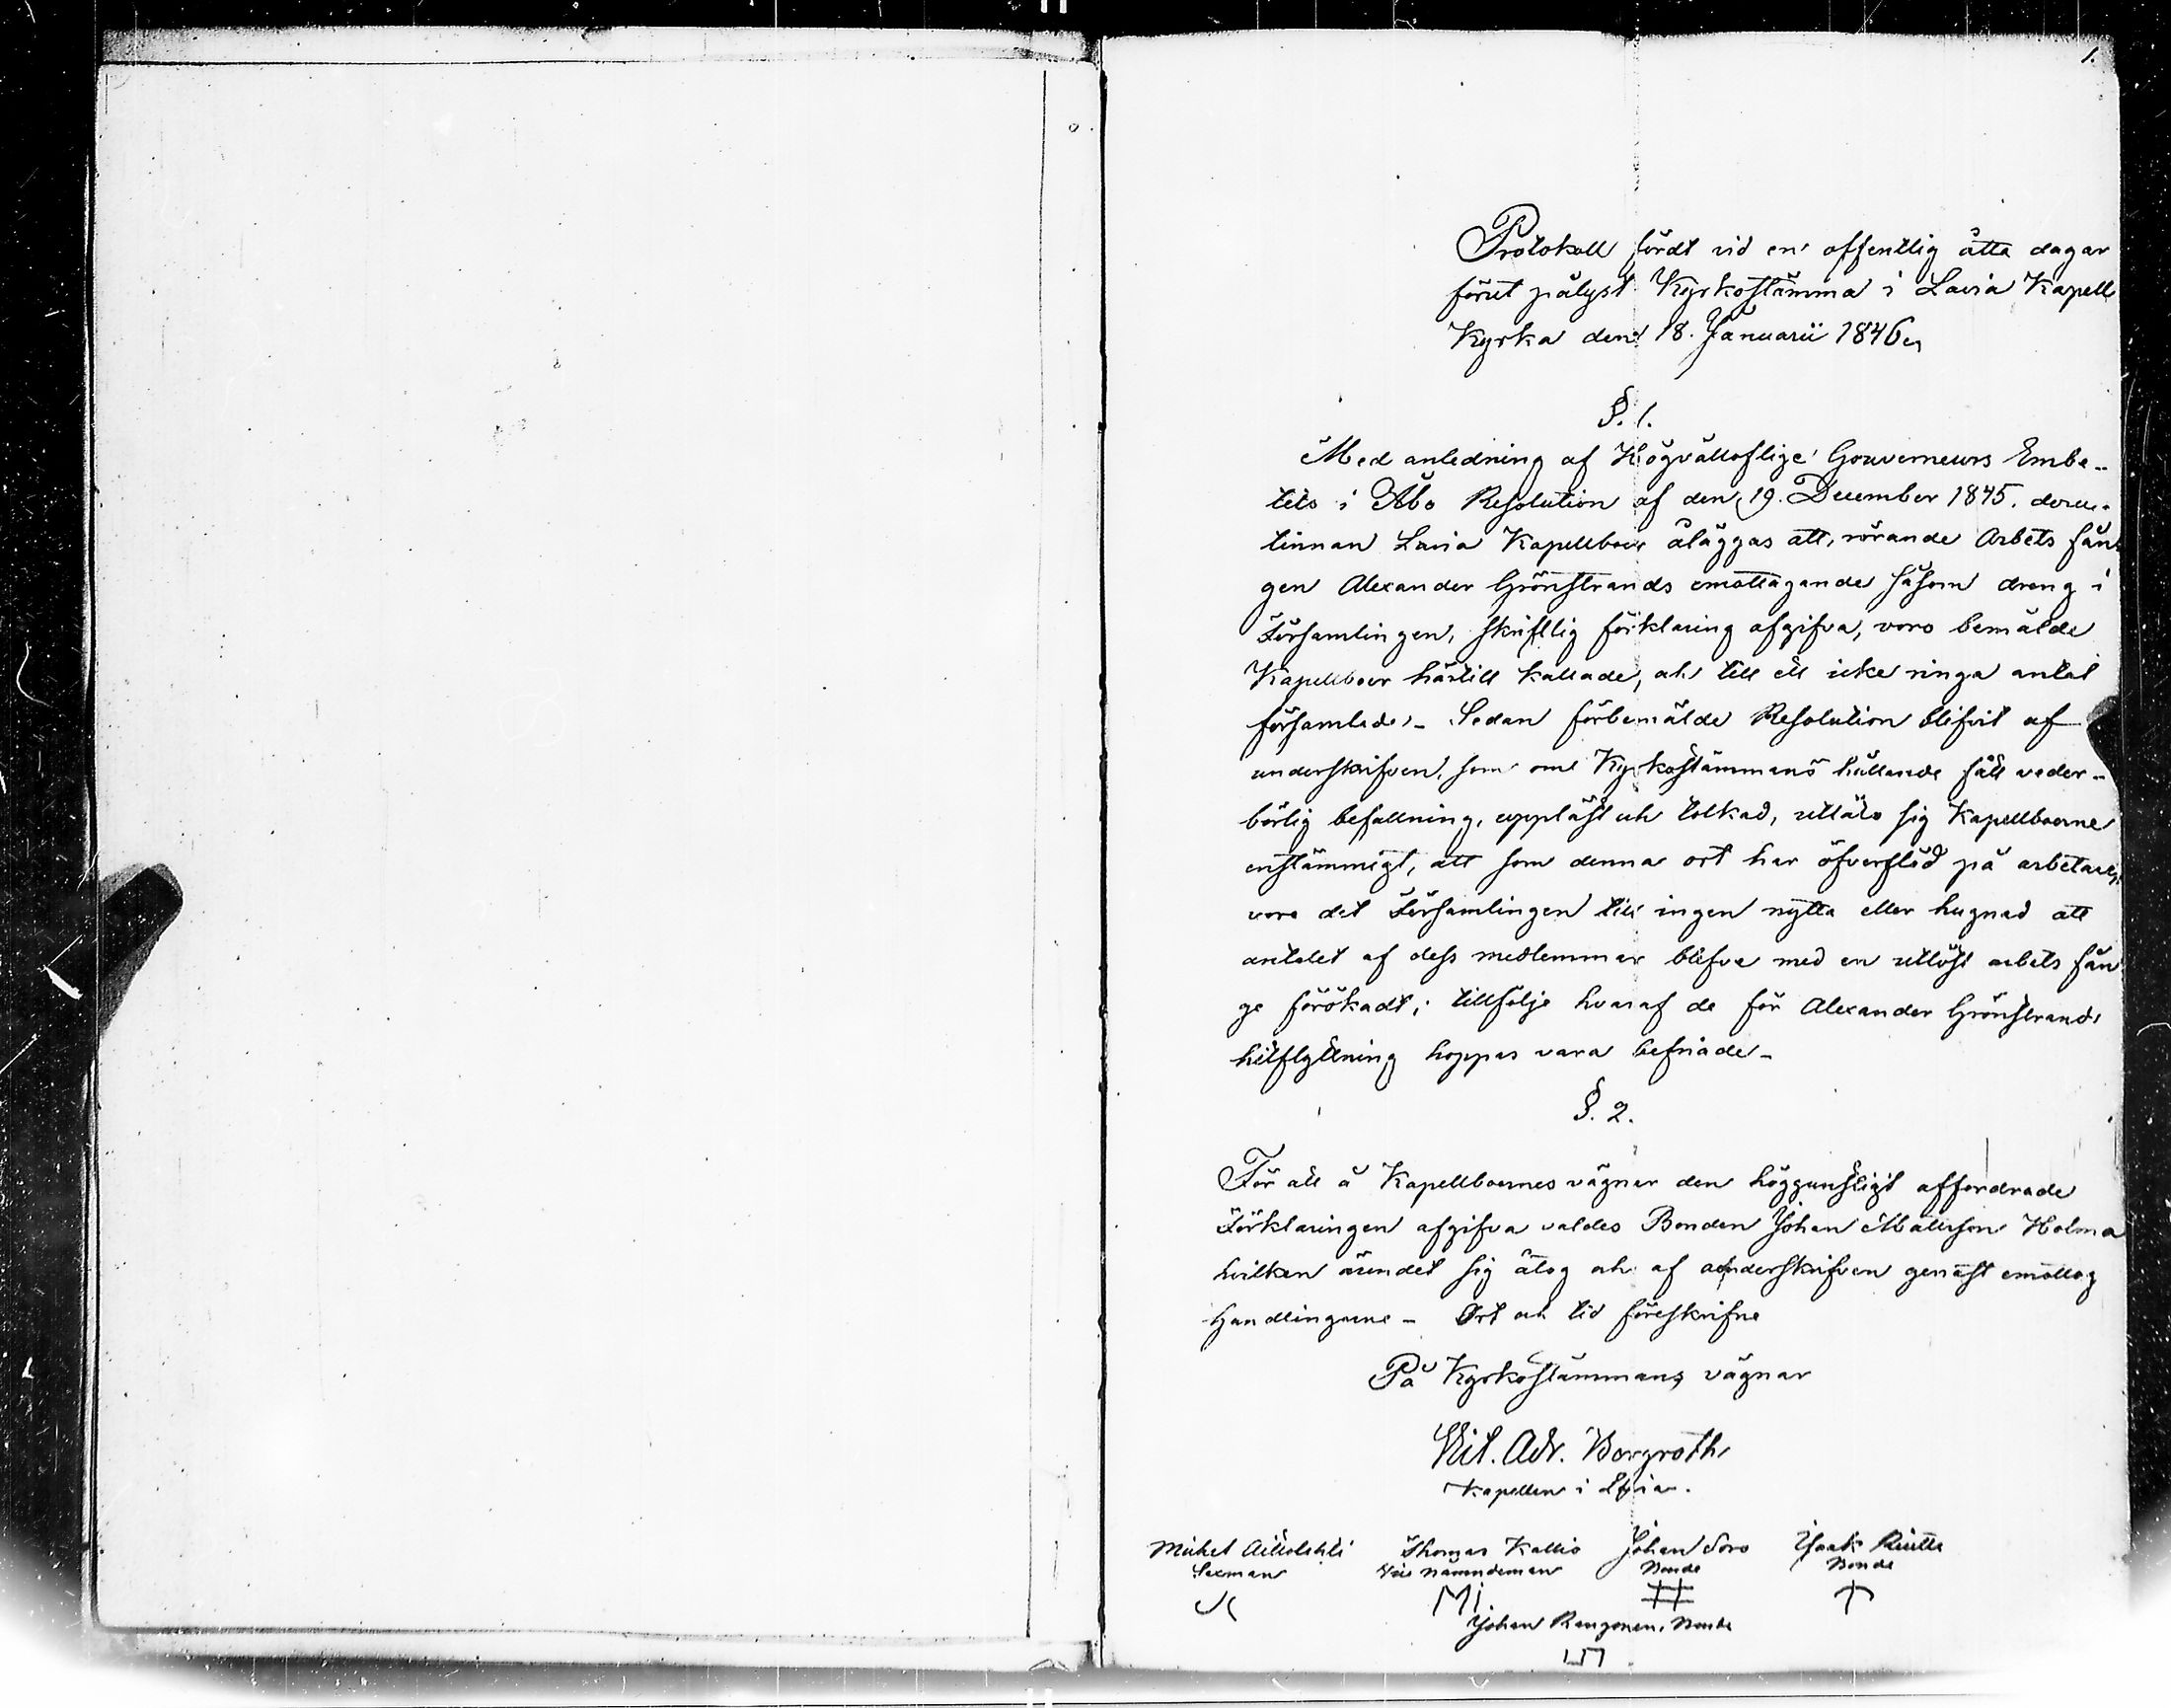 1.
Protokoll fördt vid en offentlig åtta dagar
förut pålyst Kyrkostämma i Lavia Kapell
Kyrka den 18. Januarii 1846
§. 1.
Med anledning af Högvälloflige Gouverneurs Embe-
tets i Åbo Resolution af den 19. December 1845. deru-
tinnan Lavia Kapellboer åläggas att, rörande Arbets fån-
gen Alexander Grönstrands emottagande såsom dreng i
Församlingen, skriftlig förklaring afgifva, voro bemälde
Kapellboer härtill kallade, och till ett icke ringa antal
församlade. Sedan förbemälde Resolution blifvit af
underskrifven, som om Kyrkostämmans hållande fått veder-
börlig befallning, uppläst och tolkad, utläto sig Kapellboerne
enstämmigt, att som denna ort har öfverflöd på arbetare,
vore det Församlingen till ingen nytta eller hugnad att
antalet af dess medlemmar blefve med en utlöst arbets fån
ge förökadt; tillfölje hvaraf de för Alexander Grönstrands
hitflyttning hoppas vara befriade-
§. 2.
För att å Kapellboernes vägnar den höggunstligt affordrade
Förklaringen afgifva valdes Bonden Johan Mattsson Holma
hvilken ärendet sig åtog och af underskrifven genast emottog
Handlingarne - Ort och tid föreskrifne
På Kyrkostämmans vägnar
Adr. Borgroth
Kapellan i Lavia.
Michel Thomas Kallio Johan Soro Isaak
Sexman Nämndeman Bonde Bonde
Johan Bonde